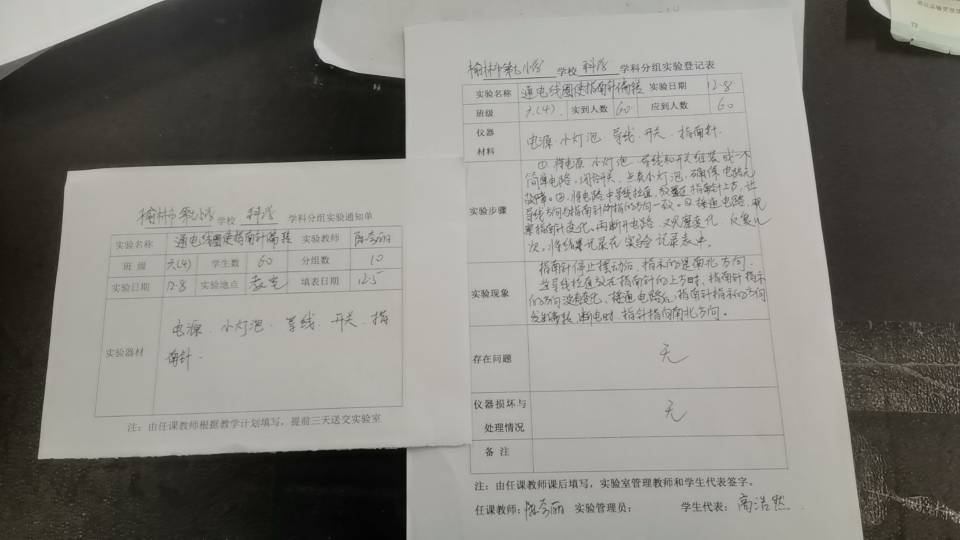 榆林市第七小学 学校 科学 学科分组实验通知单
实验名称 通电线圈使指南针偏转 实验教师
班 级 六(4) 学生数 60 分组数 10
实验日期 12.8 实验地点 教室 填表日期 12.5
实验器材 电源、小灯泡、导线、开关、指
南针.
注：由任课教师根据教学计划填写，提前三天送交实验室
榆林市第七小学 学校 科学 学科分组实验登记表
实验名称 通电线圈使指南针偏转 实验日期 12.8
班级 六(4). 实到人数 60 应到人数 60
仪器
材料 电源、小灯泡、导线、开关、指南针.
实验步骤
①将电源、小灯泡、导线和开关组装成一个
简单电路，闭合开关，点亮小灯泡，确保电路无
故障。②将电路中导线拉直，放置在指南针上方，让
导线方向与指南针的指的方向一致。③接通电路，观
察指南针变化，再断开电路，观察变化，反复几
次，将结果记录在实验记录表中。
实验现象
指南针停止摆动后，指示的是南北方向，
当导线拉直放在指南针的上方时，指南针指示
的方向没有变化，接通电路后，指南针指示的方向
发生偏转，断电时，指针指向南北方向。
存在问题 无
仪器损坏与
处理情况 无
备 注
注：由任课教师课后填写，实验室管理教师和学生代表签字。
任课教师： 实验管理员： 学生代表：高浩然